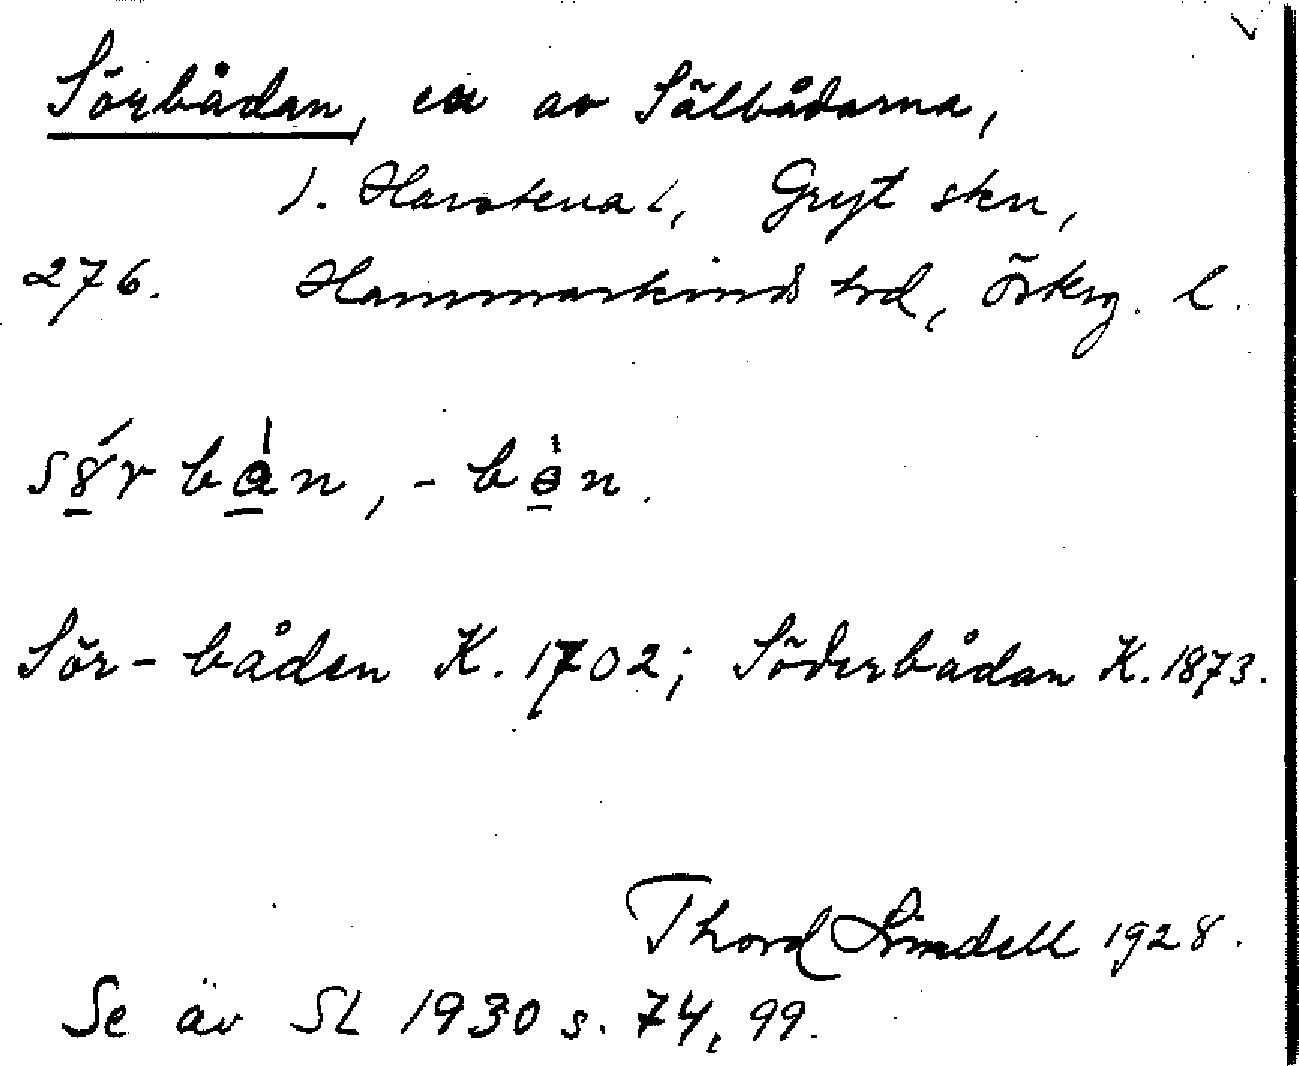 Sörbådan, en av Sälbådarna,
). Harstena l, Gryt skn,
276. Hammarkinds hrd, Österg. l.
sör bån, -bön.
Sör-båden K. 1702; Söderbådan K. 1873.
Thord Lindell 1928.
Se äv SL 1930 s. 74, 99.